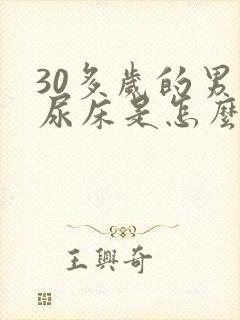 30多歲的男
尿床是怎麼
王興奇